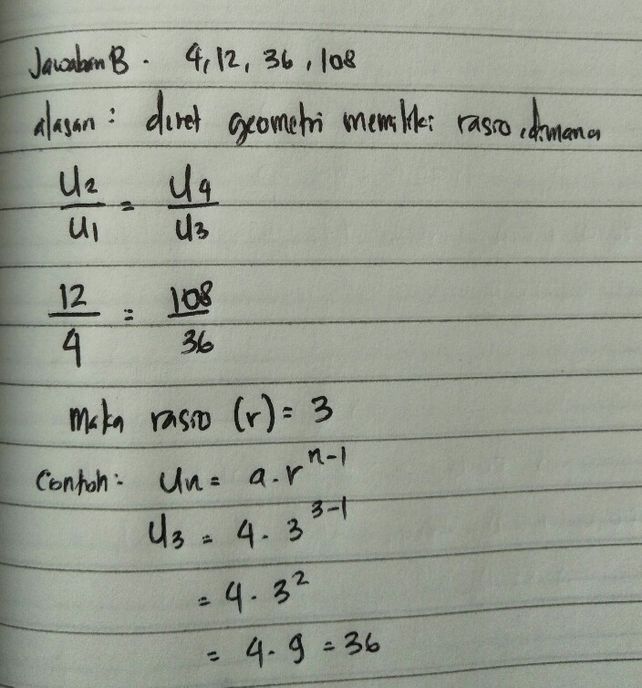 Jawaban B. 4, 12, 36, 108
alasan: deret geometri memiliki rasio, dimana
U2/U1 = U4/U3
12/4 = 108/36
maka rasio (r) = 3
Contoh: Un = a. r^n-1
U3 = 4. 3^3-1
= 4. 3²
= 4. 9 = 36